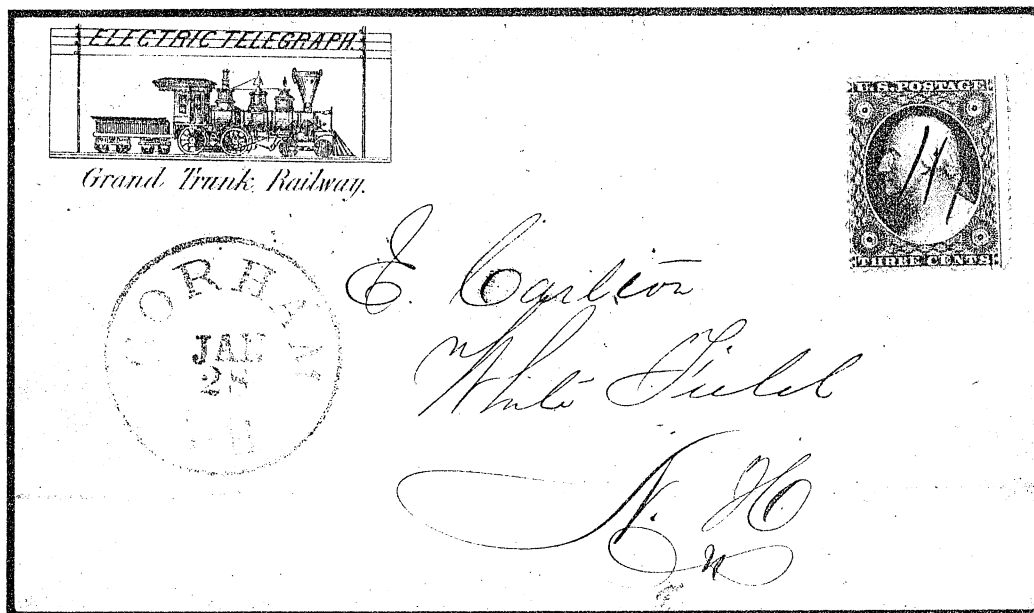 ELECTRIC TELEGRAPH.
Grand Trunk Railway.
U.S. POSTAGE
THREE CENTS
GORHAM
JAN
N.H
E. Carlton
White Field
N. H